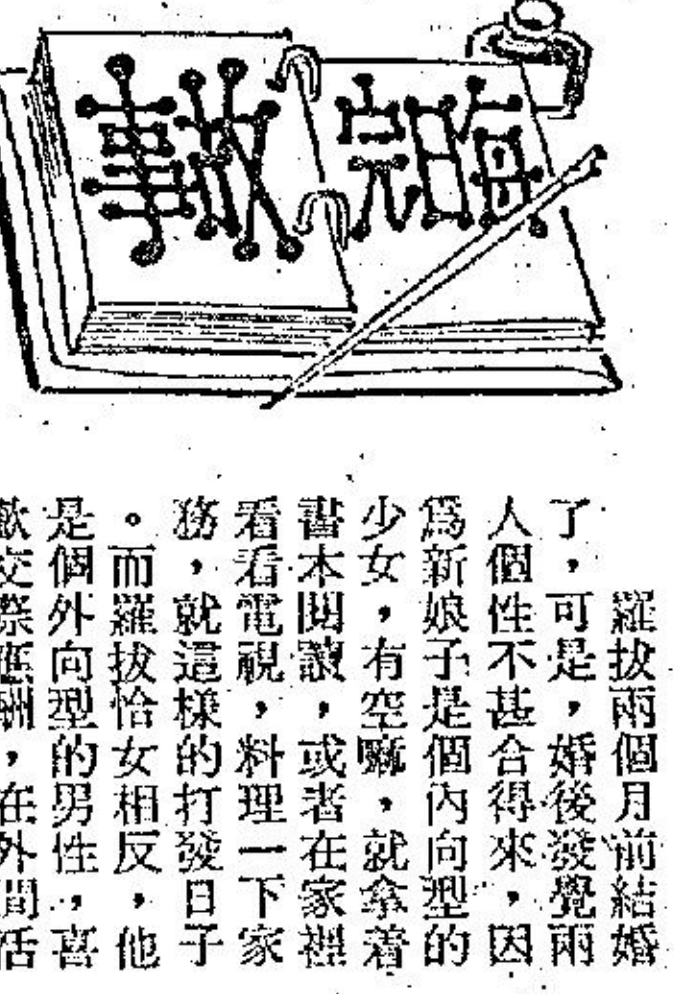 每日完故事
羅拔兩個月前結婚
了，可是，婚後發覺兩
人個性不甚合得來，因
爲新娘子是個內向型的
少女，有空嘛，就拿着
書本閱讀，或者在家裡
看看電視，料理一下家
務，就這樣的打發日子
。而羅拔恰女相反，他
是個外向型的男性，喜
歡交際應酬，在外間活